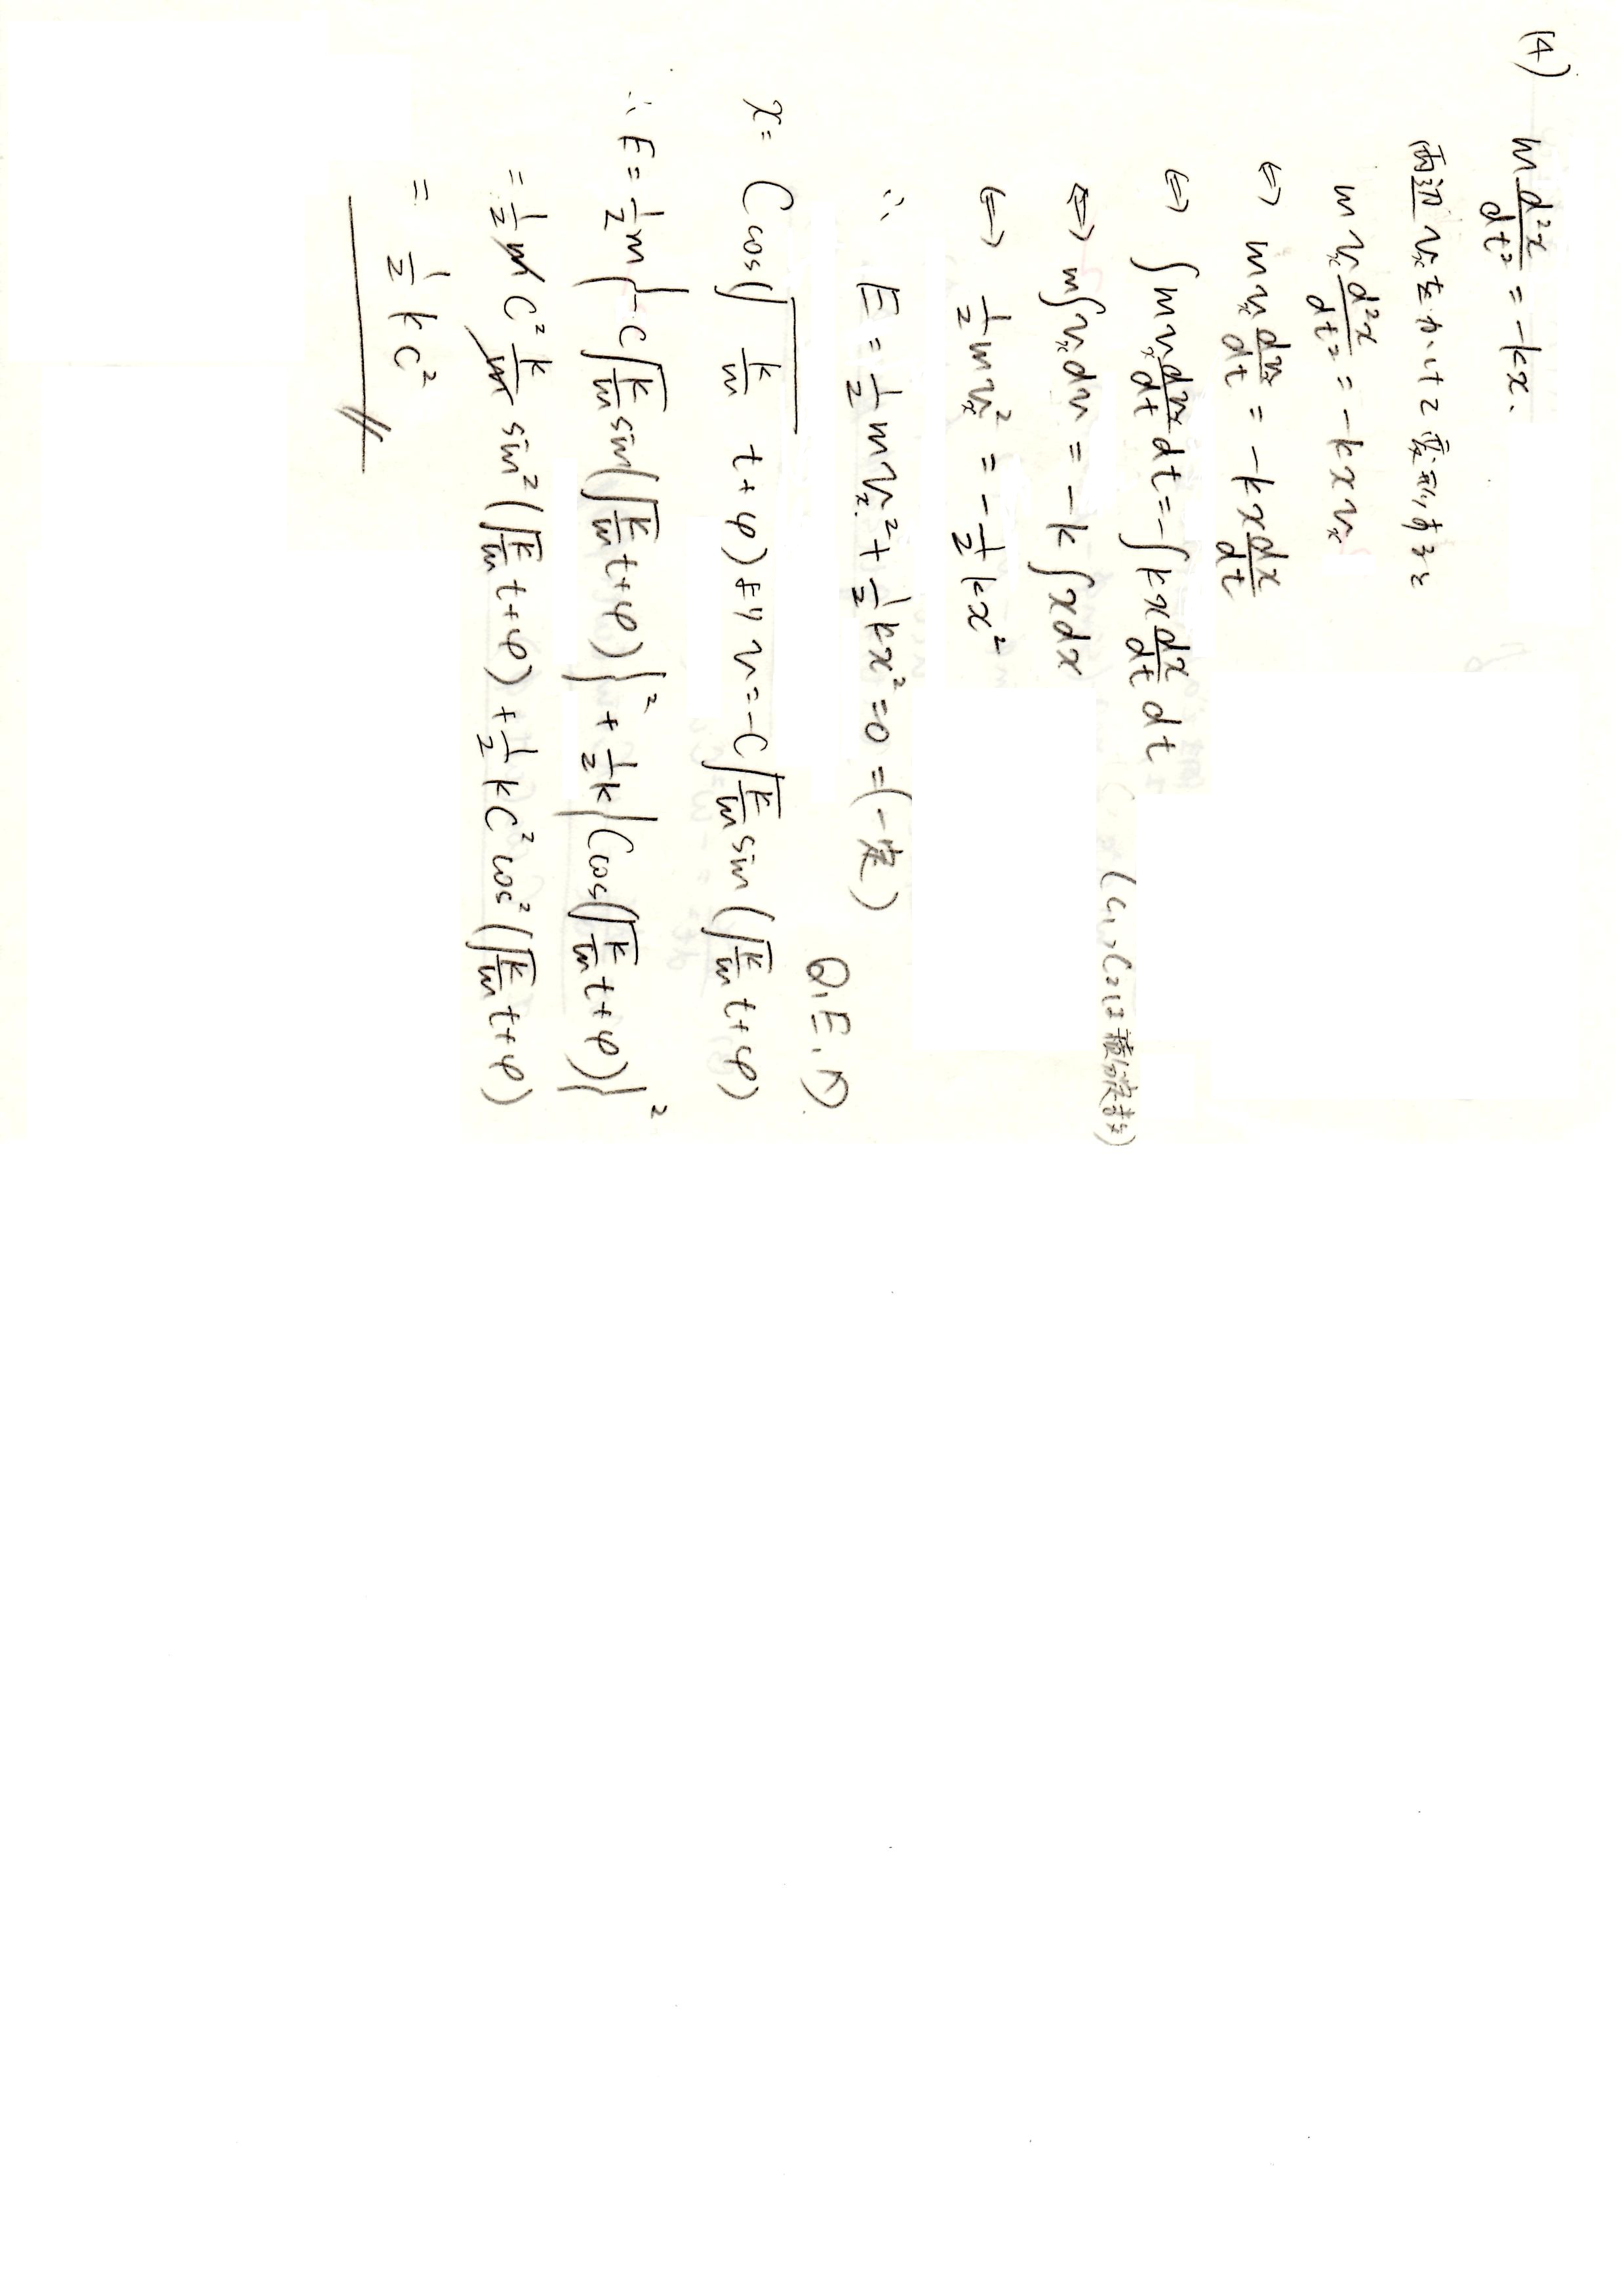 (4) m d²x/dt² = -kx.
両辺 vₓをかけて変形すると
m vₓ d²x/dt² = -kx vₓ
⇔ m vₓ dvₓ/dt = -kx dx/dt
⇔ ∫m vₓ dvₓ/dt dt = -∫kx dx/dt dt
⇔ m∫vₓdv = -k∫xdx (C₁, C₂は積分定数)
⇔ 1/2 m vₓ² = -1/2 kx²
∴ E = 1/2 m vₓ² + 1/2 kx² = 0 = (一定)
Q.E.D
x = C cos(√(k/m) t+φ) より v = -C√(k/m) sin(√(k/m) t+φ)
∴ E = 1/2 m{-C√(k/m) sin(√(k/m) t+φ)}² + 1/2 k{C cos(√(k/m) t+φ)}²
= 1/2 m C² k/m sin²(√(k/m) t+φ) + 1/2 kC² cos²(√(k/m) t+φ)
= 1/2 kC²